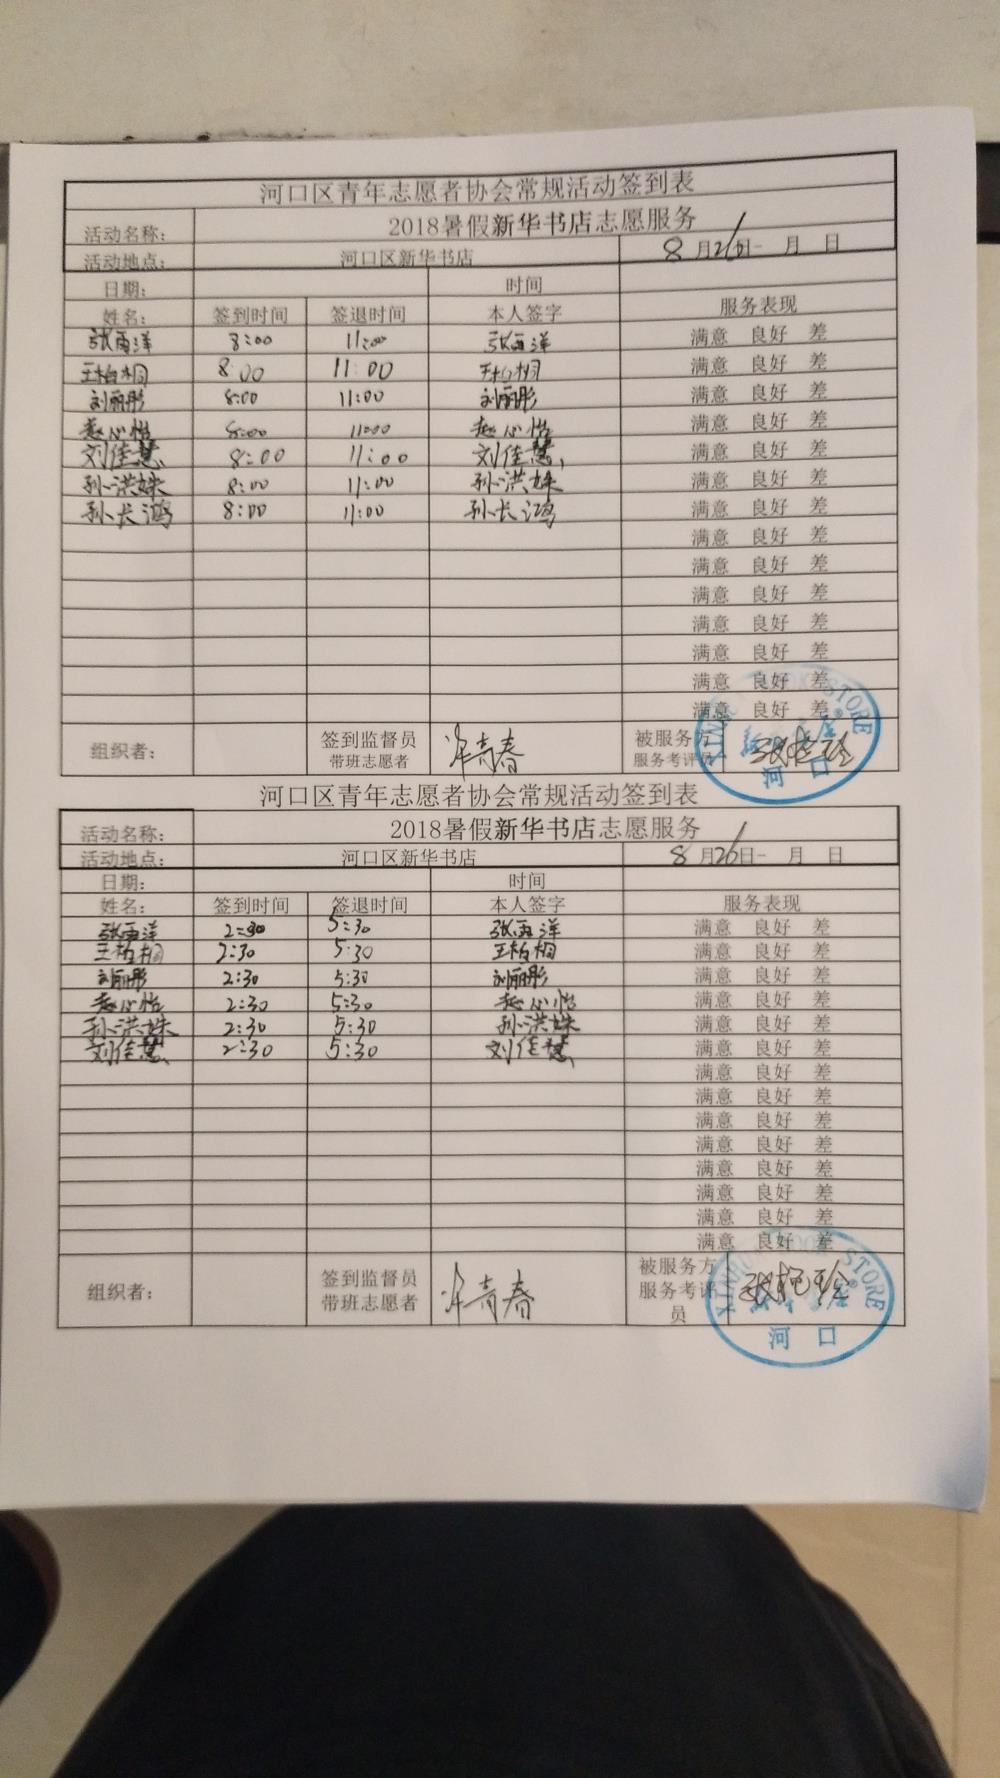 河口区青年志愿者协会常规活动签到表
活动名称： 2018暑假新华书店志愿服务
活动地点： 河口区新华书店 8月26日- 月 日
日期： 时间
姓名： 签到时间 签退时间 本人签字 服务表现
张雨洋 8:00 11:00 张雨洋 满意 良好 差
王柏桐 8:00 11:00 王柏桐 满意 良好 差
刘丽彤 8:00 11:00 刘丽彤 满意 良好 差
赵心怡 8:00 11:00 赵心怡 满意 良好 差
刘佳慧 8:00 11:00 刘佳慧 满意 良好 差
孙洪姝 8:00 11:00 孙洪姝 满意 良好 差
孙长鸿 8:00 11:00 孙长鸿 满意 良好 差
满意 良好 差
满意 良好 差
满意 良好 差
满意 良好 差
满意 良好 差
满意 良好 差
满意 良好 差
组织者： 签到监督员 青春 被服务方
带班志愿者 服务考评员
XINHUA BOOK STORE
河口
河口区青年志愿者协会常规活动签到表
活动名称： 2018暑假新华书店志愿服务
活动地点： 河口区新华书店 8月26日- 月 日
日期： 时间
姓名： 签到时间 签退时间 本人签字 服务表现
张雨洋 2:30 5:30 张雨洋 满意 良好 差
王柏桐 2:30 5:30 王柏桐 满意 良好 差
刘丽彤 2:30 5:30 刘丽彤 满意 良好 差
赵心怡 2:30 5:30 赵心怡 满意 良好 差
孙洪姝 2:30 5:30 孙洪姝 满意 良好 差
刘佳慧 2:30 5:30 刘佳慧 满意 良好 差
满意 良好 差
满意 良好 差
满意 良好 差
满意 良好 差
满意 良好 差
满意 良好 差
满意 良好 差
满意 良好 差
组织者： 签到监督员 青春 被服务方
带班志愿者 服务考评
员
XINHUA BOOK STORE
河口